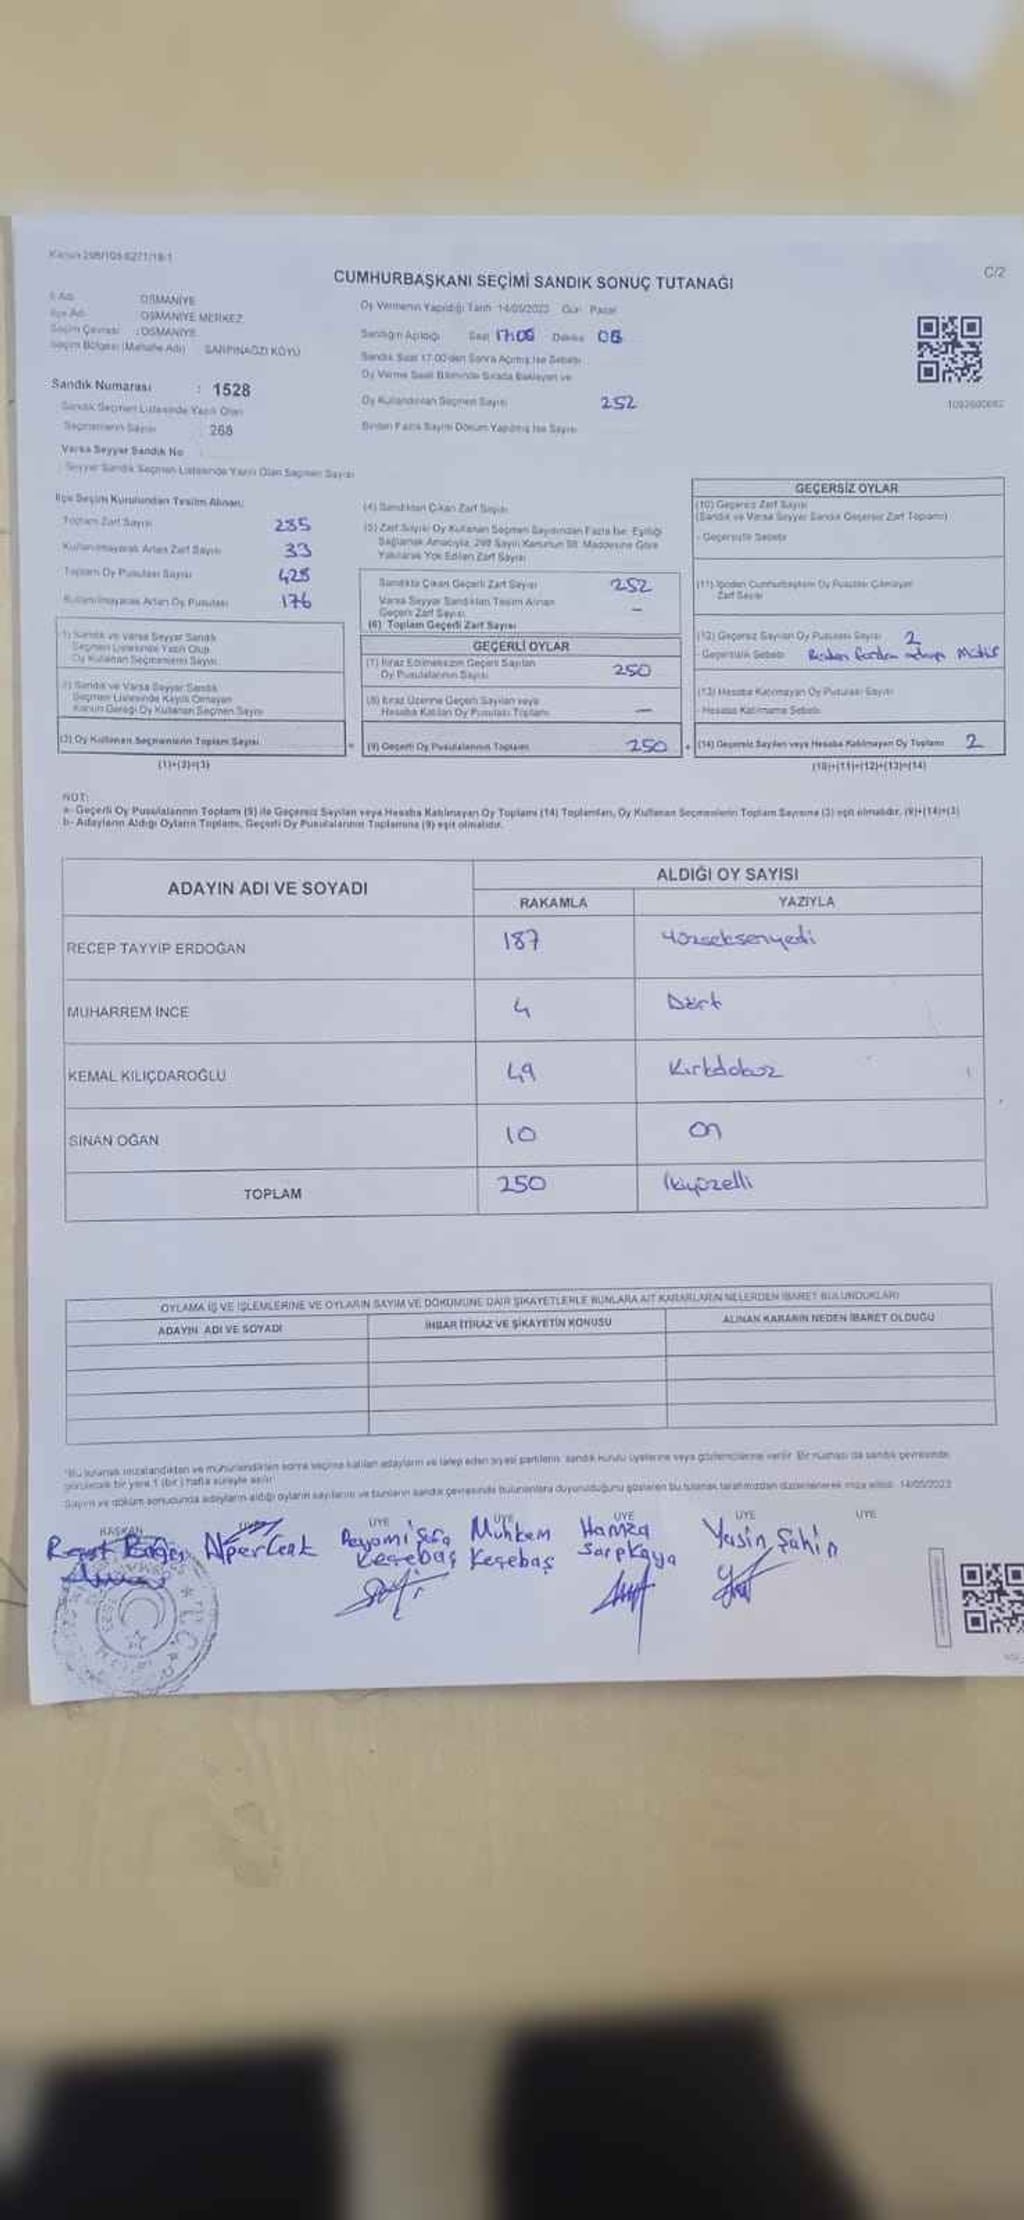 Kanun 298/105-6271/18-1
CUMHURBAŞKANI SEÇİMİ SANDIK SONUÇ TUTANAĞI
C/2
İl Adı OSMANİYE
İlçe Adı OSMANİYE MERKEZ
Seçim Çevresi : OSMANİYE
Seçim Bölgesi (Mahalle Adı) SARPINAĞZI KÖYÜ
Oy Vermenin Yapıldığı Tarih 14/05/2023 Gün Pazar
Sandığın Açıldığı Saat 17:06 Dakika 06
Sandık Saat 17.00'den Sonra Açılmış İse Sebebi
Oy Verme Saati Bitiminde Sırada Bekleyen ve
Oy Kullandırılan Seçmen Sayısı 252
Birden Fazla Sayım Döküm Yapılmış İse Sayısı
Sandık Numarası : 1528
Sandık Seçmen Listesinde Yazılı Olan
Seçmenlerin Sayısı : 268
Varsa Seyyar Sandık No
Seyyar Sandık Seçmen Listesinde Yazılı Olan Seçmen Sayısı
İlçe Seçim Kurulundan Teslim Alınan:
Toplam Zarf Sayısı 285
Kullanılmayarak Artan Zarf Sayısı 33
Toplam Oy Pusulası Sayısı 428
Kullanılmayarak Artan Oy Pusulası 176
(1) Sandık ve Varsa Seyyar Sandık
Seçmen Listesinde Yazılı Olup
Oy Kullanan Seçmenlerin Sayısı
(2) Sandık ve Varsa Seyyar Sandık
Seçmen Listesinde Kayıtlı Olmayan
Kanun Gereği Oy Kullanan Seçmen Sayısı
(3) Oy Kullanan Seçmenlerin Toplam Sayısı
(1)+(2)=(3)
(4) Sandıktan Çıkan Zarf Sayısı
(5) Zarf Sayısı Oy Kullanan Seçmen Sayısından Fazla İse, Eşitliği
Sağlamak Amacıyla, 298 Sayılı Kanunun 98. Maddesine Göre
Yakılarak Yok Edilen Zarf Sayısı
Sandıkta Çıkan Geçerli Zarf Sayısı 252
Varsa Seyyar Sandıktan Teslim Alınan
Geçerli Zarf Sayısı –
(6) Toplam Geçerli Zarf Sayısı
GEÇERLİ OYLAR
(7) İtiraz Edilmeksizin Geçerli Sayılan
Oy Pusulalarının Sayısı 250
(8) İtiraz Üzerine Geçerli Sayılan veya
Hesaba Katılan Oy Pusulası Toplamı –
(9) Geçerli Oy Pusulalarının Toplamı 250
GEÇERSİZ OYLAR
(10) Geçersiz Zarf Sayısı
(Sandık ve Varsa Seyyar Sandık Geçersiz Zarf Toplamı)
- Geçersizlik Sebebi
(11) İçinden Cumhurbaşkanı Oy Pusulası Çıkmayan
Zarf Sayısı
(12) Geçersiz Sayılan Oy Pusulası Sayısı 2
- Geçersizlik Sebebi Birden fazla adaya Mühür
(13) Hesaba Katılmayan Oy Pusulası Sayısı
- Hesaba Katılmama Sebebi
(14) Geçersiz Sayılan veya Hesaba Katılmayan Oy Toplamı 2
(10)+(11)+(12)+(13)=(14)
NOT:
a- Geçerli Oy Pusulalarının Toplamı (9) ile Geçersiz Sayılan veya Hesaba Katılmayan Oy Toplamı (14) Toplamları, Oy Kullanan Seçmenlerin Toplam Sayısına (3) eşit olmalıdır. (9)+(14)=(3)
b- Adayların Aldığı Oyların Toplamı, Geçerli Oy Pusulalarının Toplamına (9) eşit olmalıdır.
ADAYIN ADI VE SOYADI
ALDIĞI OY SAYISI
RAKAMLA YAZIYLA
RECEP TAYYİP ERDOĞAN 187 Yüzseksenyedi
MUHARREM İNCE 4 Dört
KEMAL KILIÇDAROĞLU 49 Kırkdokuz
SİNAN OĞAN 10 On
TOPLAM 250 İkiyüzelli
OYLAMA İŞ VE İŞLEMLERİNE VE OYLARIN SAYIM VE DÖKÜMÜNE DAİR ŞİKAYETLERLE BUNLARA AİT KARARLARIN NELERDEN İBARET BULUNDUKLARI
ADAYIN ADI VE SOYADI İHBAR İTİRAZ VE ŞİKAYETİN KONUSU ALINAN KARARIN NEDEN İBARET OLDUĞU
*Bu tutanak imzalandıktan ve mühürlendikten sonra seçime katılan adayların ve talep eden siyasi partilerin sandık kurulu üyelerine veya gözlemcilerine verilir. Bir nüshası da sandık çevresinde
görülecek bir yere 1 (bir) hafta süreyle asılır.
Sayım ve döküm sonucunda adayların aldığı oyların sayılarını ve bunların sandık çevresinde bulunanlara duyurulduğunu gösteren bu tutanak tarafımızdan düzenlenerek imza edildi. 14/05/2023
BAŞKAN ÜYE ÜYE ÜYE ÜYE ÜYE ÜYE
Alper Cenk
Peyami Sefa Keçebaş
Muhkem Keçebaş
Hamza Sarpkaya
Yasin Şahin